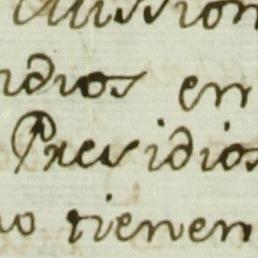 Mission
idios en
Presidios
no tienen